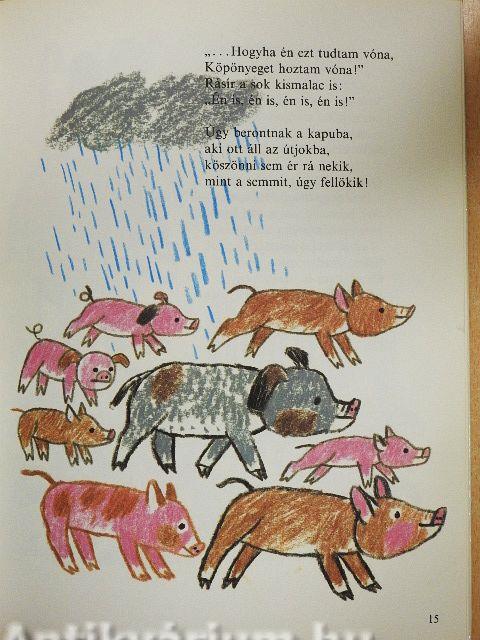 „. . . Hogyha én ezt tudtam vóna,
Köpönyeget hoztam vóna!”
Rásír a sok kismalac is:
„Én is, én is, én is, én is!”
Úgy berontnak a kapuba,
aki ott áll az útjokba,
köszönni sem ér rá nekik,
mint a semmit, úgy fellökik!
15
Antikvárium.hu